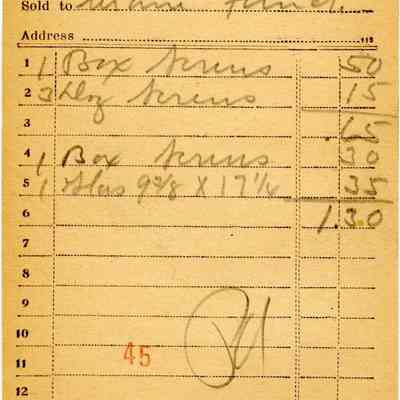 Sold to
Address
1 1 Box Screws 50
2 3 Doz Screws 15
3 .65
4 1 Box Screws 30
5 1 Glas 9 3/8 X 17 1/4 35
6 1.30
7
8
9
10 Pd
11 45
12